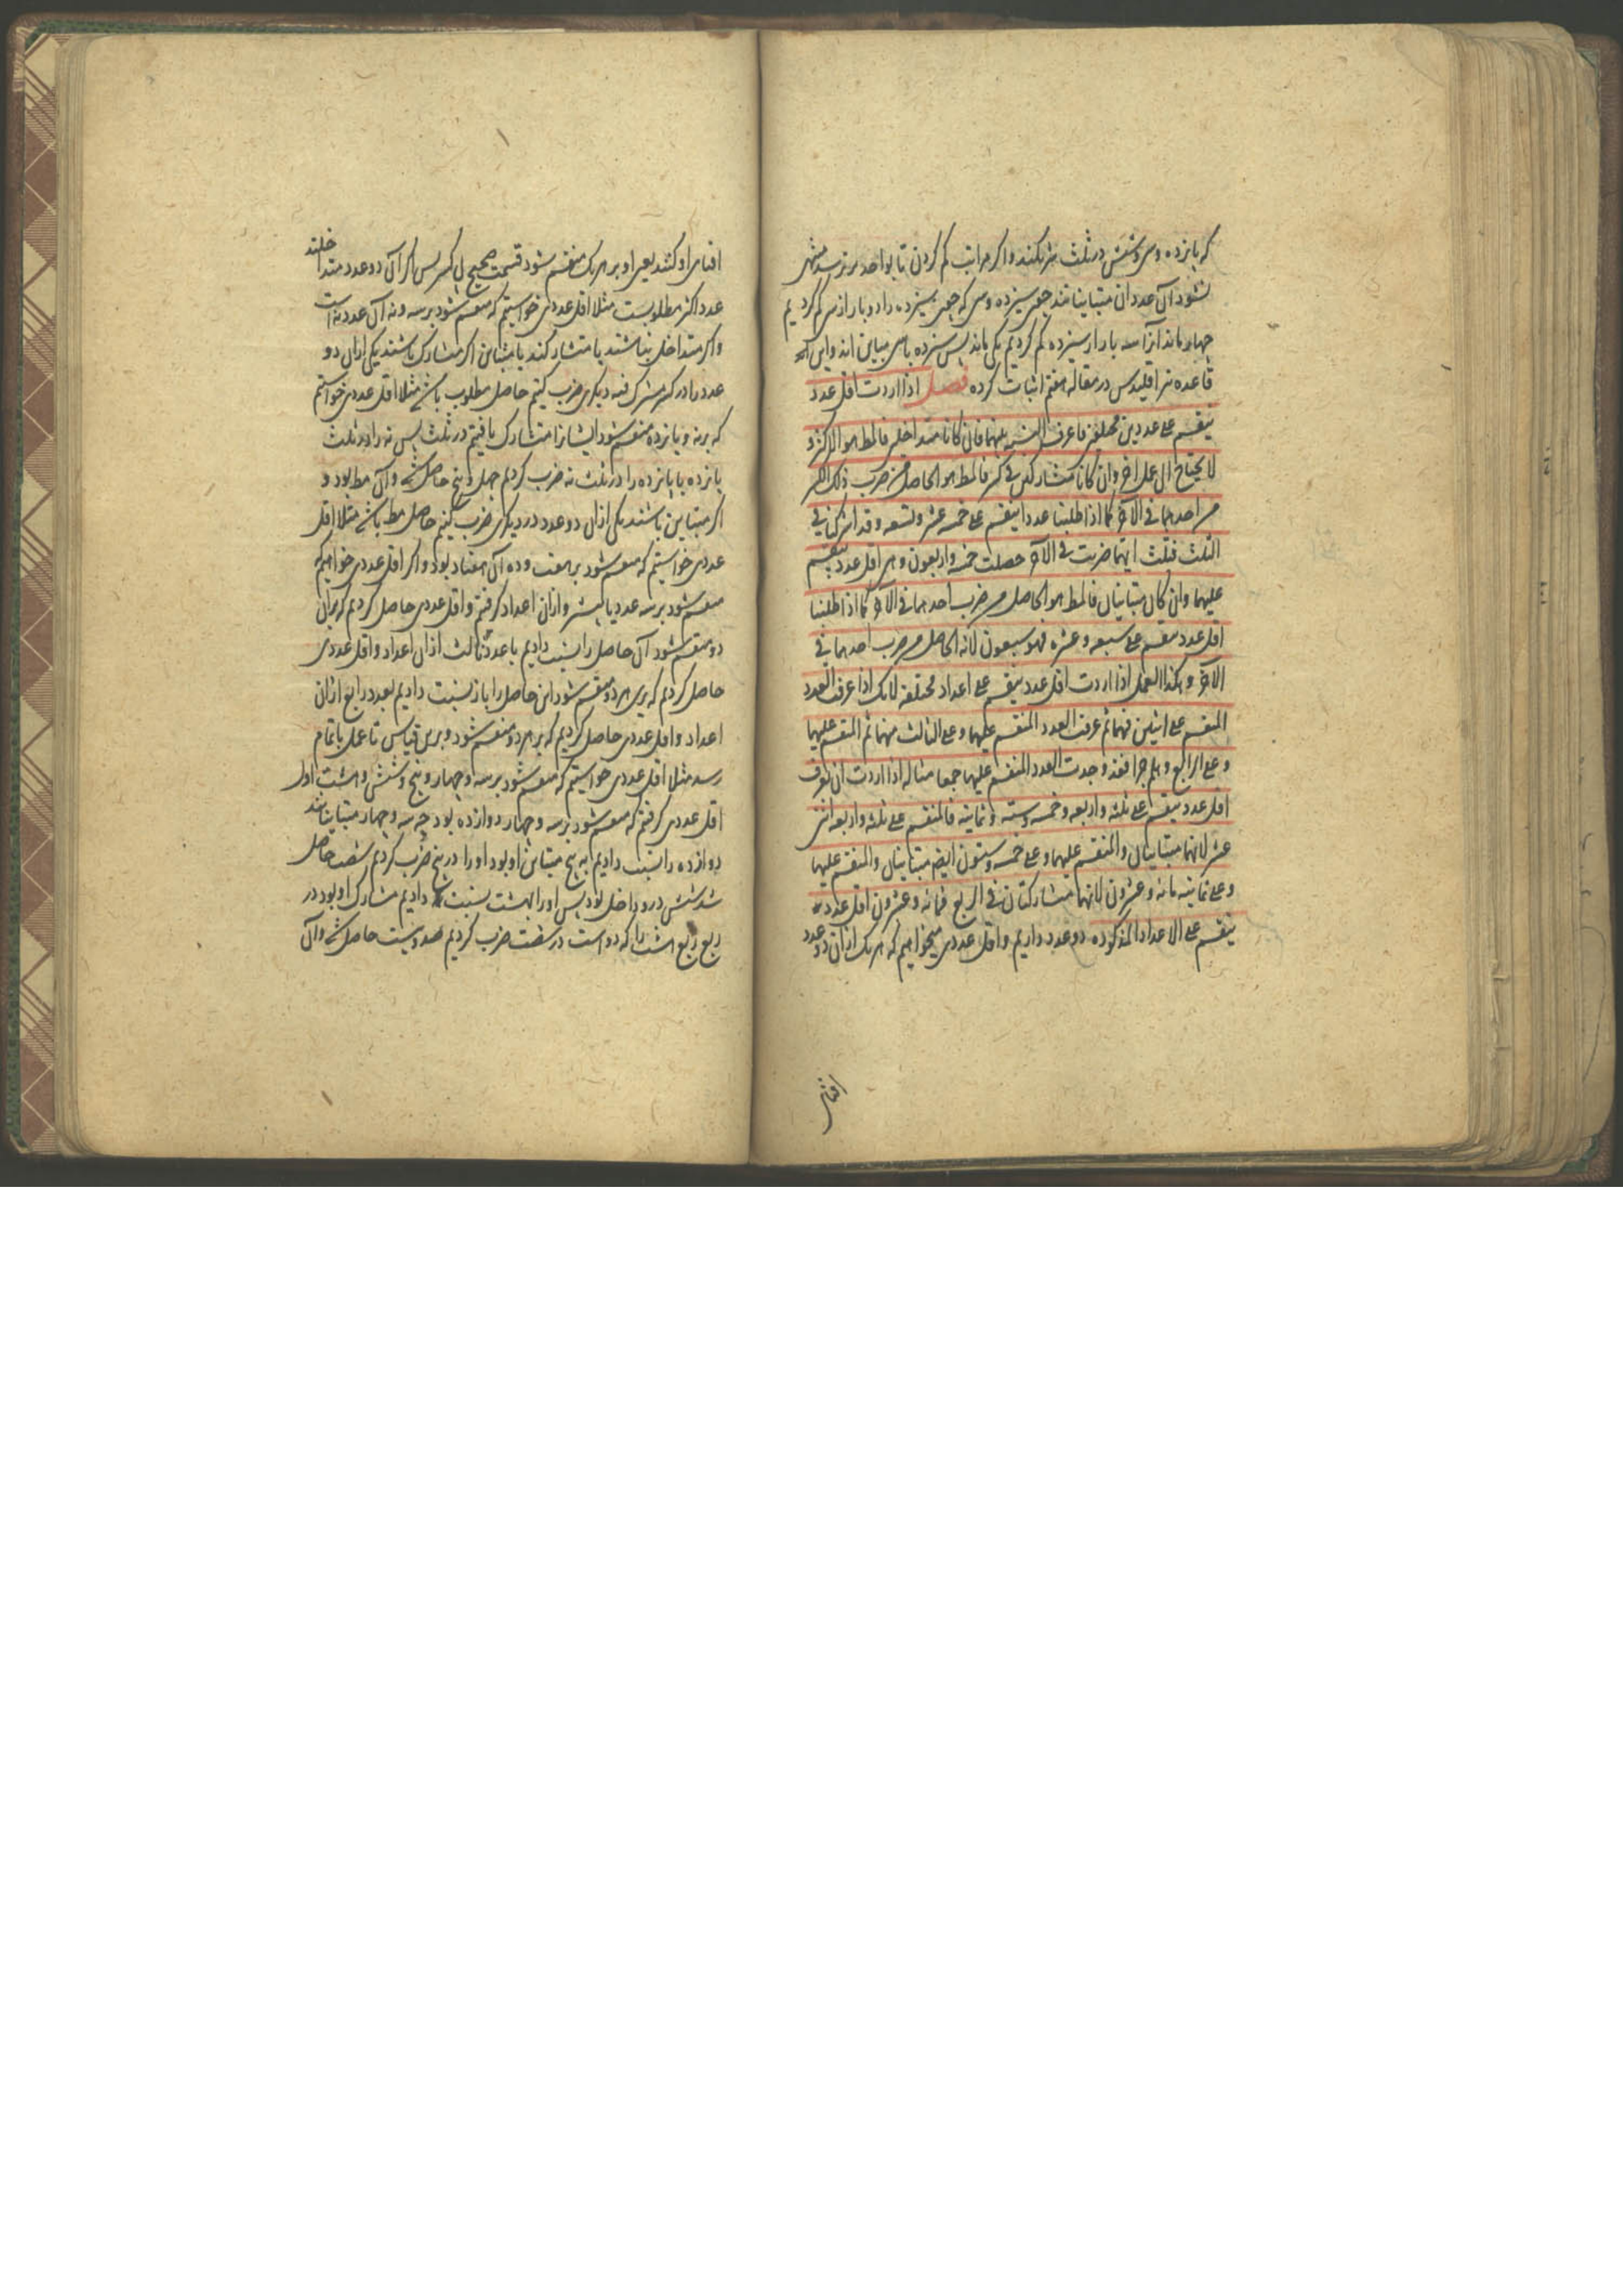 که پانزده و سی و شش در ثلث شریکند و اکر مراتب کم کردن تا بواحد نرسد منتهی
نشود آن عددان متباینانند چون سیزده و سی که چون سیزده را دو بار از سی کم کردیم
چهار ماند آنرا سه بار از سیزده کم کردیم یکی ماند پس سیزده با سی مباین اند و این
قاعده را اقلیدس در مقاله هفتم اثبات کرده فصل اذا اردت اقل عدد
ینقسم علی عددین مختلفین فاعرف النسبه بینهما فان کانا متداخلین فالمط هو الاکثر و
لا یحتاج الی عمل آخر وان کانا متشارکین فی کسر فالمط هو الحاصل من ضرب ذلک الکسر
من احدهما فی الآخر کما اذا طلبنا عددا ینقسم علی خمسه عشر و تسعه و قد اشترکتا فی
الثلث فثلث ایهما ضربت فی الآخر حصلت خمسه و اربعون و هی اقل عدد ینقسم
علیهما وان کان متباینان فالمط هو الحاصل من ضرب احدهما فی الآخر کما اذا طلبنا
اقل عدد ینقسم علی سبعه و عشره فهو سبعون لانه الحاصل من ضرب احدهما فی
الآخر و هکذا العمل اذا اردت اقل عدد ینقسم علی اعداد مختلفه لانک اذا عرفت العدد
المنقسم علی اثنین منهما ثم عرفت العدد المنقسم علیهما و علی الثالث منهما ثم المنقسم علیهما
و علی الرابع و هلم جرا فقد وجدت العدد المنقسم علیهما جمعا مثاله اذا اردت ان تعرف
اقل عدد ینقسم علی ثلثه و اربعه و خمسه و سته و ثمانیه فالمنقسم علی ثلثه و اربعه اثنی
عشر لانهما متباینان والمنقسم علیهما و علی خمسه ستون ایض متباینان والمنقسم علیهما
و علی ثمانیه مائه و عشرون لانهما مشارکتان فی الربع فمائه و عشرون اقل عدد
ینقسم علی الاعداد المذکوره دو عدد داریم و اقل عددی میخواهیم که هر یک ازان دو عدد
افنای
افنای او کنند یعنی او بر هر یک منقسم شود قسمت صحیح بی کسر پس اکر آن دو عدد متداخلند
عدد اکثر مطلوبست مثلا اقل عددی خواستیم که منقسم شود بر سه و نه آن عدد نه است
و اکر متداخل نباشند یا متشارکند یا متباین اکر متشارک باشند یکی ازان دو
عدد را در کسر مشترک فیه دیکری ضرب کنیم حاصل مطلوب باشد مثلا اقل عددی خواستیم
که بر نه و پانزده منقسم شود ایشانرا متشارک یافتیم در ثلث پس نه را در ثلث
پانزده یا پانزده را در ثلث نه ضرب کردیم چهل و پنج حاصل شد و آن مط بود و
اکر متباین باشند یکی ازان دو عدد در دیکری ضرب کنیم حاصل مط باشد مثلا اقل
عددی خواستیم که منقسم شود بر هفت و ده آن هفتاد بود و اکر اقل عددی خواهیم که
منقسم شود بر سه عدد یا بیشتر و ازان اعداد کرفتیم و اقل عددی حاصل کردیم که بران
دو منقسم شود آن حاصل را نسبت دادیم با عدد ثالث ازان اعداد و اقل عددی
حاصل کردیم که برین هر دو منقسم شود این حاصل را باز نسبت دادیم بعدد رابع ازان
اعداد و اقل عددی حاصل کردیم که بر هر دو منقسم شود و برین قیاس تا عمل باتمام
رسد مثلا اقل عددی خواستیم که منقسم شود بر سه و چهار و پنج و شش و هشت اول
اقل عددی کرفتیم که منقسم شود بر سه و چهار دوازده بود چه سه و چهار متباینانند
دوازده را نسبت دادیم به پنج متباین او بود او را در پنج ضرب کردیم شصت حاصل
شد شش درو داخل بود پس او را بهشت نسبت دادیم مشارک او بود در
ربع ربع هشت را که دو است در شصت ضرب کردیم صد و بیست حاصل شد و آن